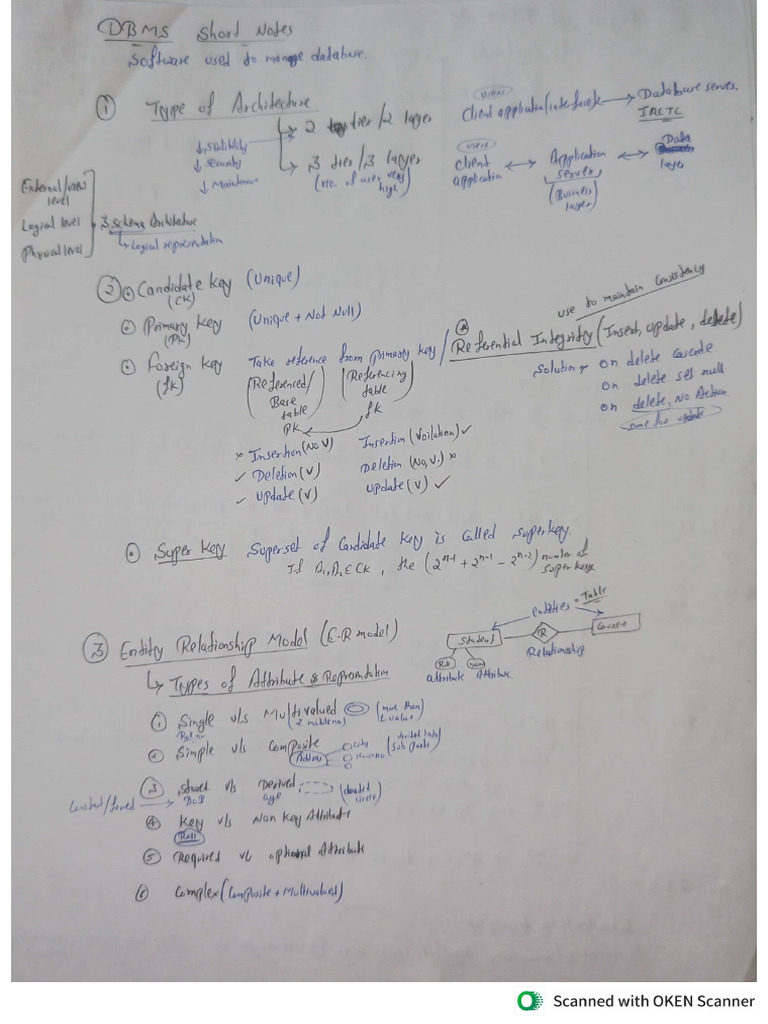 DBMS Short Notes
Software used to manage database.
① Type of Architecture
↳ 2 tier/2 layer
↳ 3 tier/3 layer
(no. of user very high)
↓ Scalibility
↓ Security
users
Client application (interface) → Database server.
IRCTC
users
client application ↔ Application server ↔ Data layer
(Business layer)
External/view level
Logical level
Physical level
3 Schema Architecture
↳ Logical representation
② Candidate Key (Unique)
(CK)
Primary Key (Unique + Not Null)
(PK)
Foreign Key Take reference from primary key / Referential Integrity (Insert, update, delete)
(fk)
use to maintain consistency
(Referenced/ Base table) (Referencing table)
PK fk
× Insertion (No V) Insertion (Voilation) ✓
✓ Deletion (V) Deletion (No, V.) ×
✓ Update (V) Update (V) ✓
Solution → on delete Cascade
on delete set null
on delete, No Action
same for update
Super Key Superset of Candidate Key is called superkey.
If A₁,A₂ ∈ CK, the (2ⁿ⁻¹ + 2ⁿ⁻¹ − 2ⁿ⁻²) number of super keys
③ Entity Relationship Model (E-R model)
entities = Table
Student R Course
Relationship
Roll Name
attribute Attribute.
↳ Types of Attribute & Representation
① Single v/s Multivalued (more than 1 value)
Roll no (2 mobile no)
② Simple v/s Composite (divided into sub parts)
Address City House no
③ Stored v/s Derived (dotted circle)
DOB age
④ Key v/s Non Key Attribute
Roll
⑤ Required v/s optional Attribute
⑥ Complex (Composite + Multivalued)
Scanned with OKEN Scanner